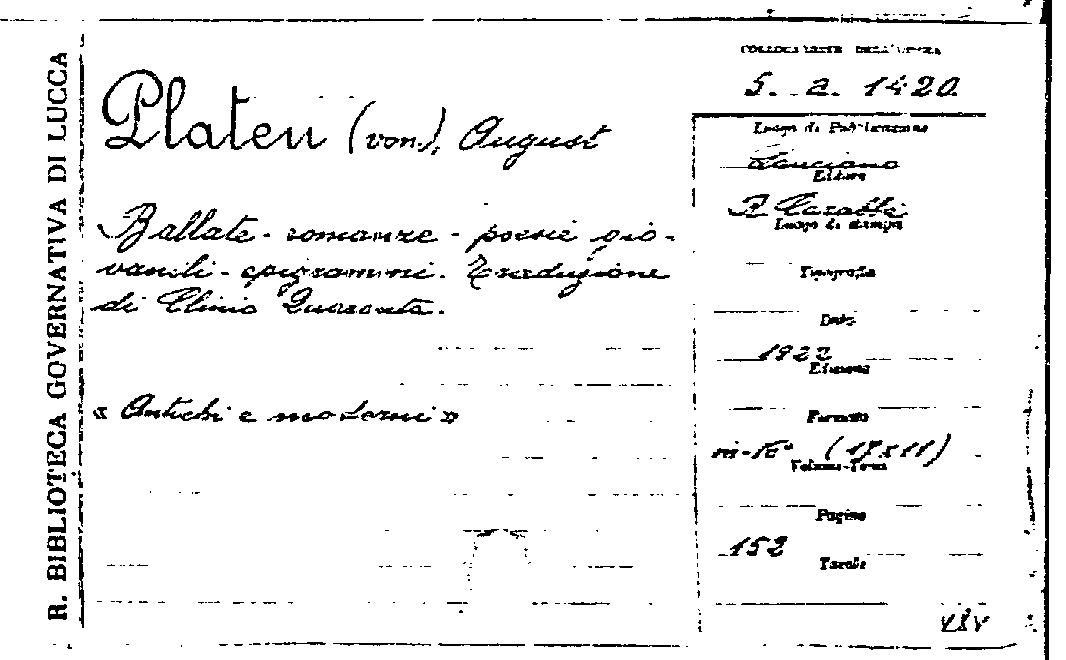 R. BIBLIOTECA GOVERNATIVA DI LUCCA
Platen (von), August
Ballate - romanze - poesie gio-
vanili - epigrammi. Traduzione
di Clinio Quaranta.
« Antichi e moderni »
COLLOCAZIONE DELL'OPERA
5. a. 1420.
Luogo di Pubblicazione
Lanciano
Editore
R. Carabba
Luogo di stampa
Tipografia
Data
1922
Edizione
Formato
in-16° (17x11)
Volume-Tomo
Pagine
152
Tavole